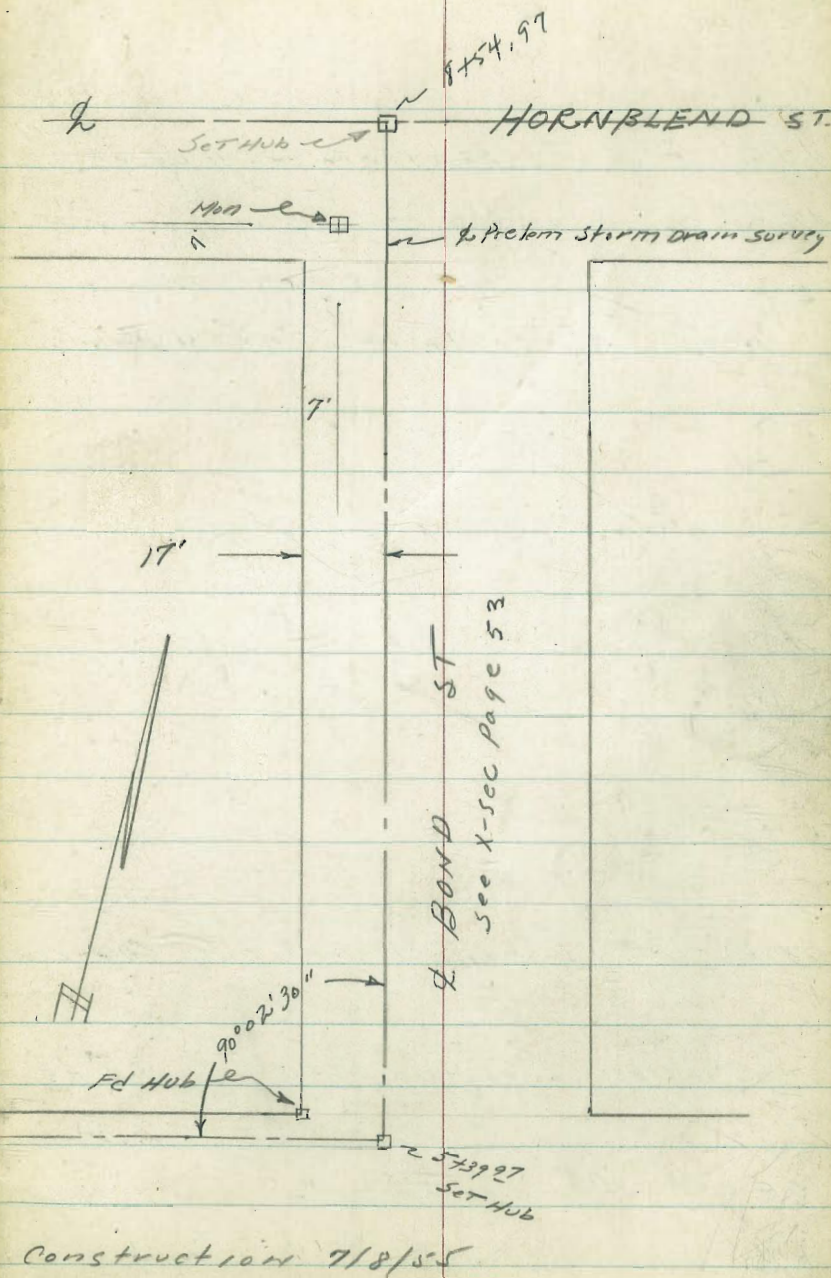 8+54.97
℄ HORNBLEND ST.
Set Hub
Mon
7'
℄ Prelem Storm Drain Survey
7'
17'
℄ BOND ST
See X-sec Page 53
90°02'30"
Fd Hub
5+39.97
Set Hub
Construction 7/8/55